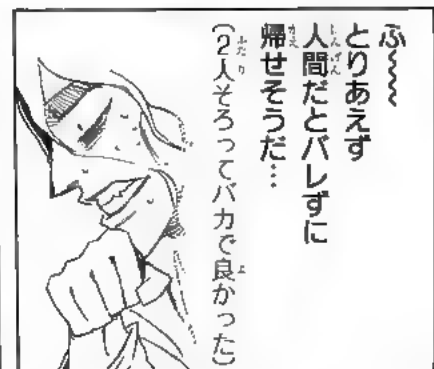 ふ〜〜〜
とりあえず
人間だとバレずに
帰せそうだ…
(2人そろってバカで良かった)